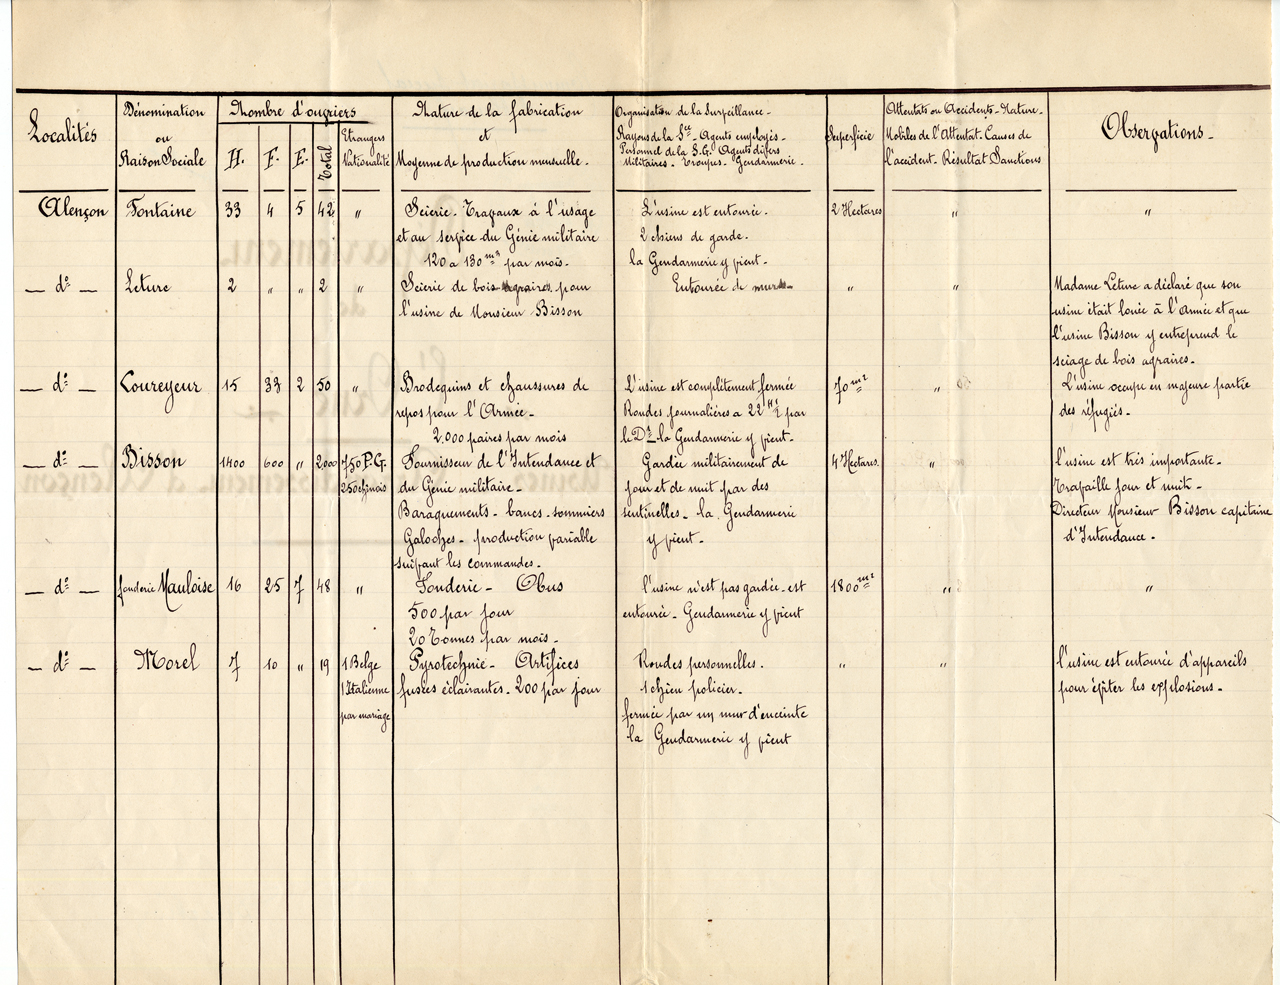 Localités
Dénomination
ou
Raison Sociale
Nombre d'ouvriers
H. F. E. Total
Etrangers
Nationalité
Nature de la fabrication
et
Moyenne de production mensuelle.
Organisation de la Surveillance.
Rayons de la Sté - Agents employés -
Personnel de la S.G. Agents divers
Militaires - Troupes - Gendarmerie.
Superficie
Attentats ou Accidents - Nature -
Mobiles de l'Attentat. Causes de
l'accident. Résultat Sanctions
Observations -
Alençon Fontaine 33 4 5 42 "
Scierie - Travaux à l'usage
et au service du Génie militaire
120 à 130 m3 par mois.
L'usine est entourée.
2 chiens de garde.
la Gendarmerie y vient.
2 Hectares " "
— d° — Leture 2 " " 2 "
Scierie de bois agraires pour
l'usine de Monsieur Bisson
Entourée de murs
" "
Madame Léture a déclaré que son
usine était louée à l'Armée et que
l'usine Bisson y entreprend le
sciage de bois agraires.
— d° — Coureyeur 15 33 2 50 "
Brodequins et chaussures de
repos pour l'Armée -
2.000 paires par mois
L'usine est complètement fermée
Rondes journalières à 22 H ½ par
le Dr - la Gendarmerie y vient -
70 m2 "
L'usine occupe en majeure partie
des réfugiés -
— d° — Bisson 1400 600 " 2000
750 P.G.
250 chinois
Fournisseur de l'Intendance et
du Génie militaire -
Baraquements - bancs - sommiers
Galoches - production variable
suivant les commandes.
Gardée militairement de
jour et de nuit par des
sentinelles - la Gendarmerie
y vient -
4 Hectares "
l'usine est très importante -
Travaille jour et nuit -
Directeur Monsieur Bisson capitaine
d'Intendance -
— d° — fonderie Mauloise 16 25 7 48 "
Fonderie - Obus
500 par jour
20 Tonnes par mois -
l'usine n'est pas gardée - est
entourée - Gendarmerie y vient
1800 m2 " "
— d° — Morel 7 10 " 19
1 Belge
1 Italienne
par mariage
Pyrotechnie - Artifices
fusées éclairantes - 200 par jour
Rondes personnelles.
1 chien policier -
fermée par un mur d'enceinte
la Gendarmerie y vient
" "
l'usine est entourée d'appareils
pour éviter les explosions -